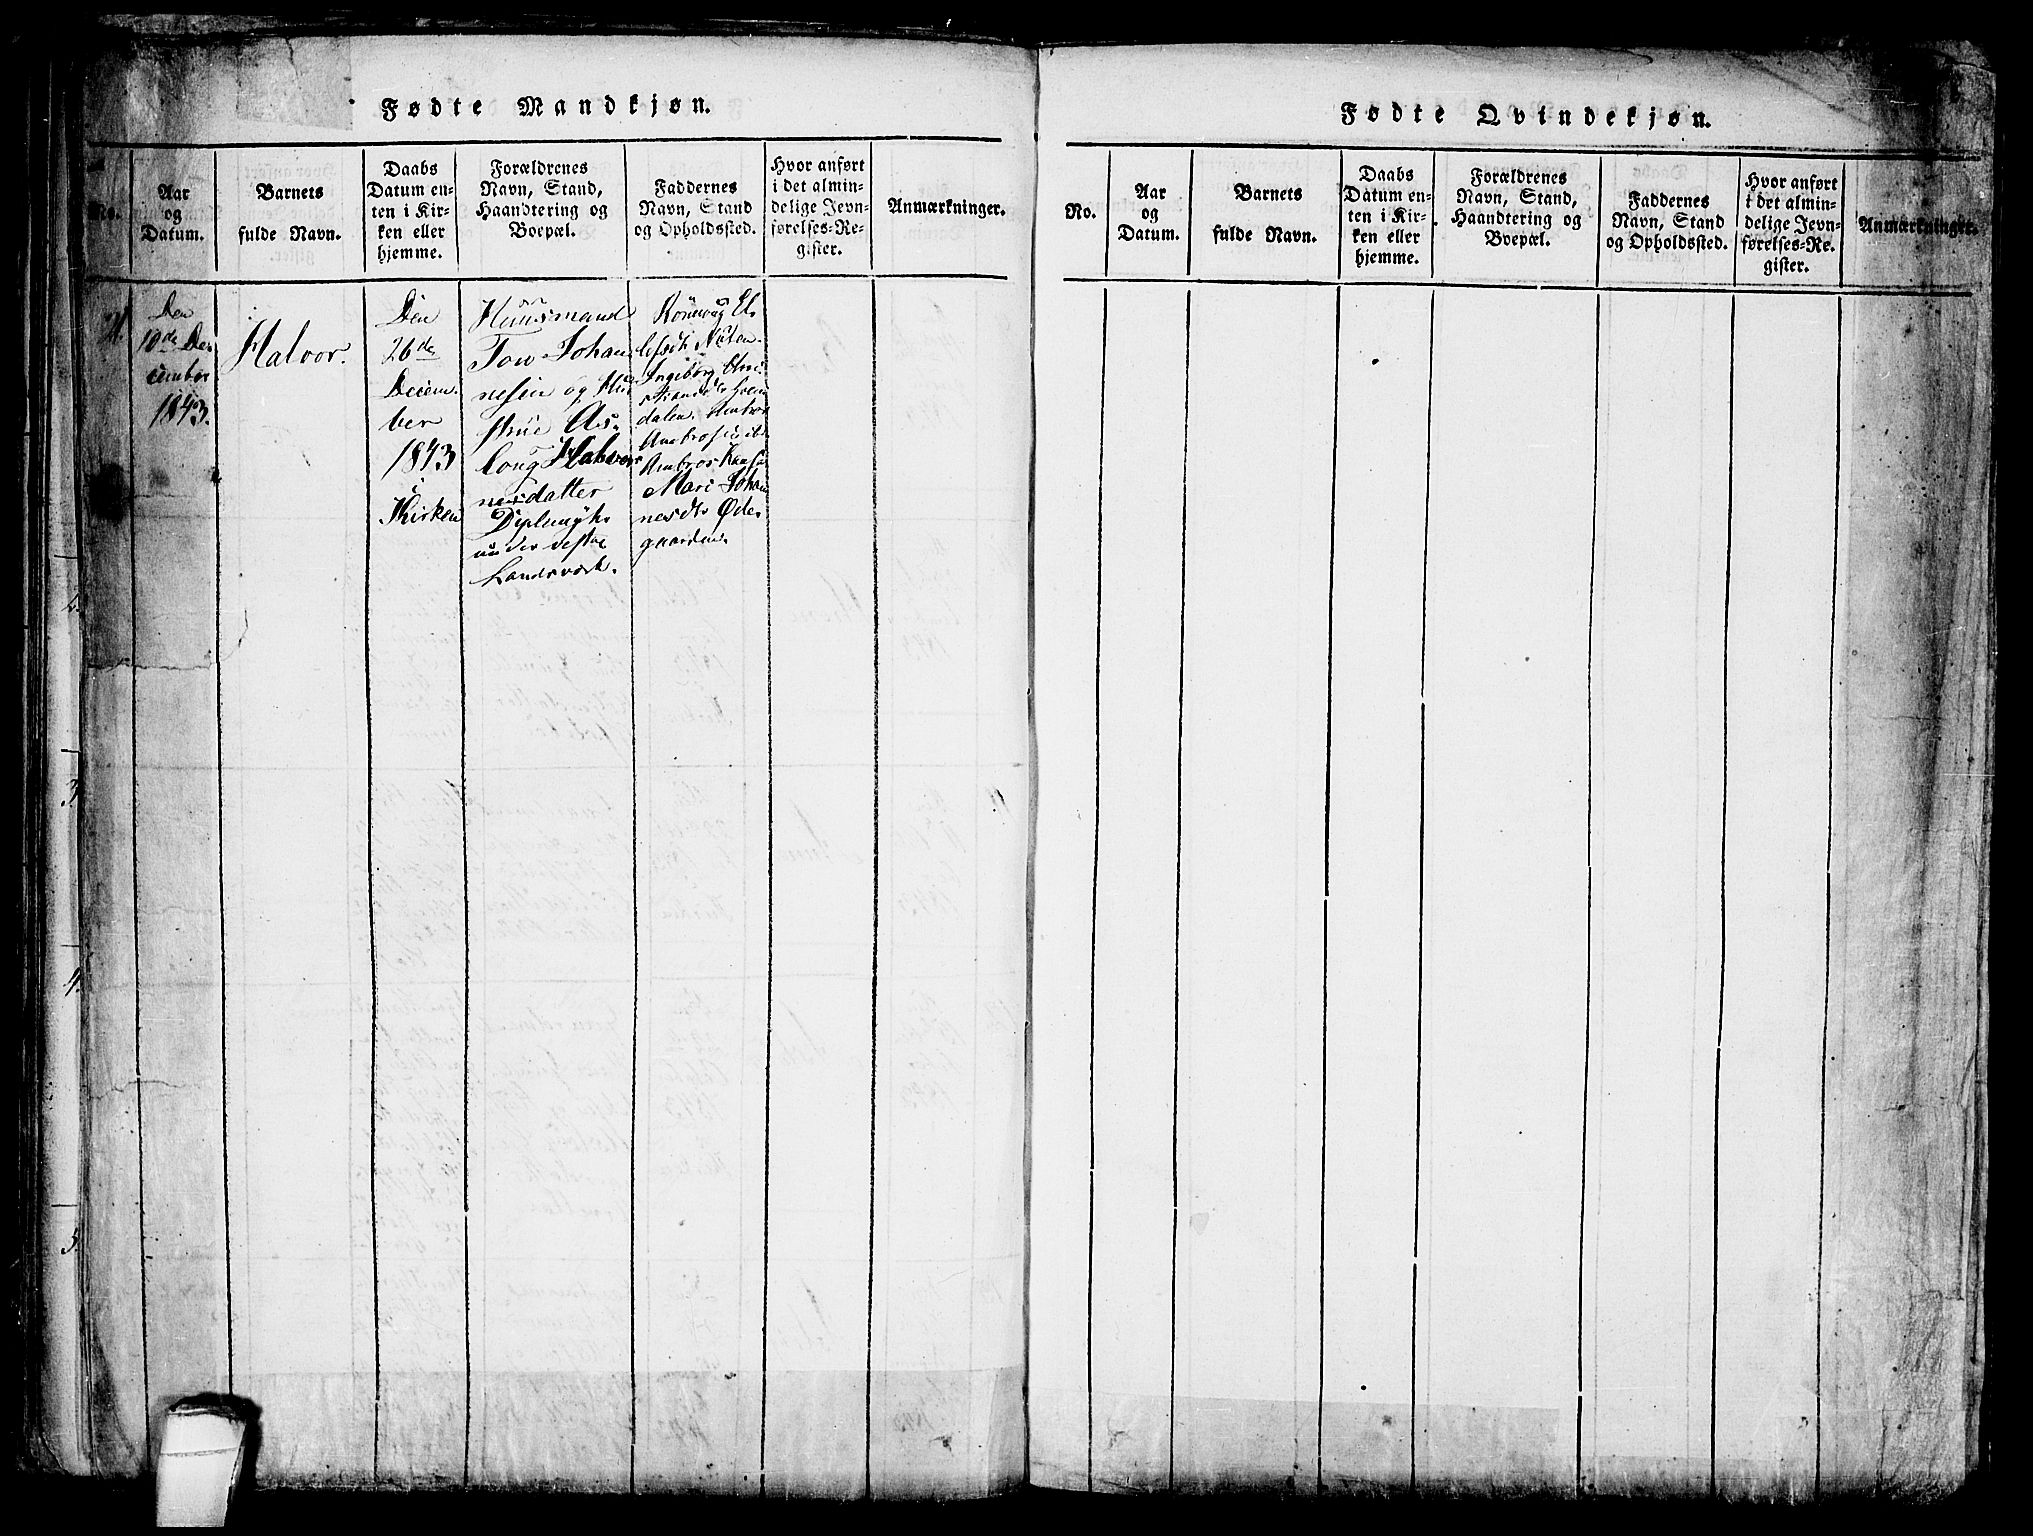 Fødte Mandkjøn.
No.
Aar
og
Datum.
Barnets
fulde Navn.
Daabs
Datum en-
ten i Kir-
ken eller
hjemme.
Forældrenes
Navn, Stand,
Haandtering og
Boepæl.
Faddernes
Navn, Stand
og Opholdssted.
Hvor anført
i det almin-
delige Jevn-
førelses-Re-
gister.
Anmærkninger.
21.
Den
10de De-
cember
1843.
Halvor.
Den
26de
Decem-
ber
1843
i
Kirken
Huusmand
Tov Johan-
nesen og Hu-
strue As-
loug Halvor
nesdatter
under vestre
Landsværk.
Mari Johan
nesdtr Øde-
gaarden.
Fødte Qvindekjøn.
No.
Aar
og
Datum.
Barnets
fulde Navn.
Daabs
Datum en-
ten i Kir-
ken eller
hjemme.
Forældrenes
Navn, Stand,
Haandtering og
Boepæl.
Faddernes
Navn, Stand
og Opholdssted.
Hvor anført
i det almin-
delige Jevn-
førelses-Re-
gister.
Anmærkninger.
3
4.
5.